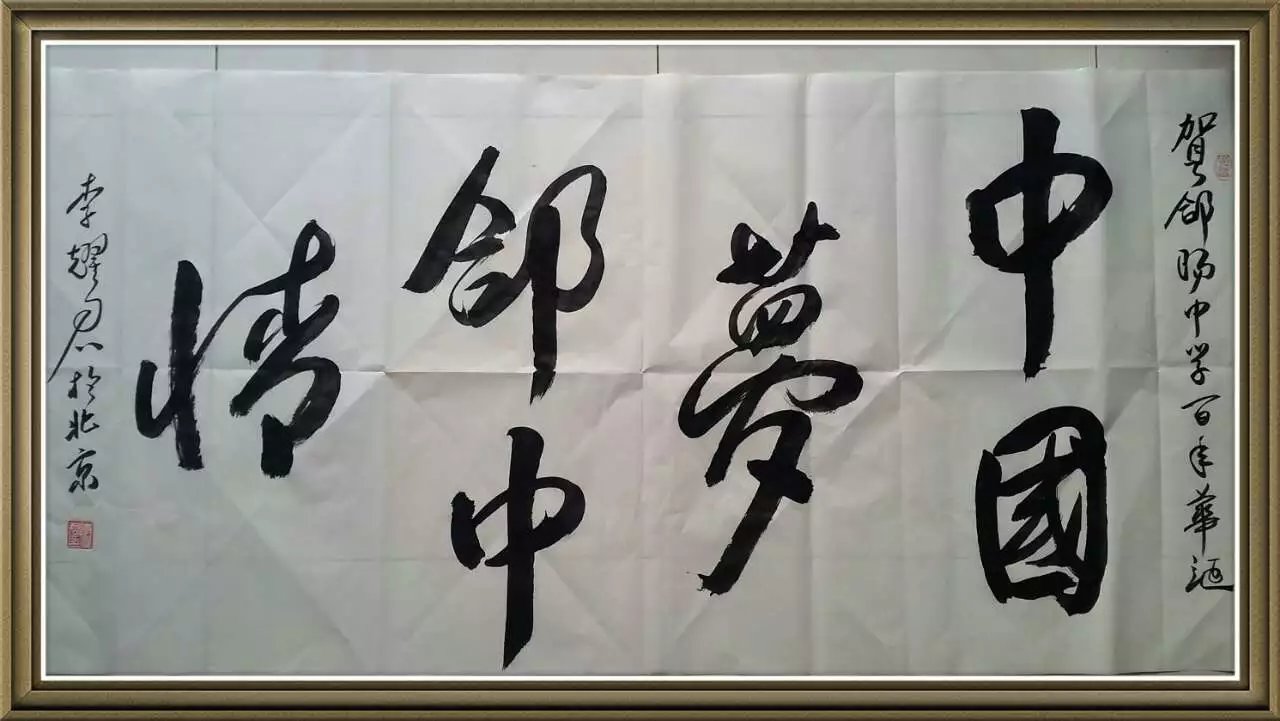 賀郃陽中学百年華誕
中國
夢
郃中
情
李耀 於北京